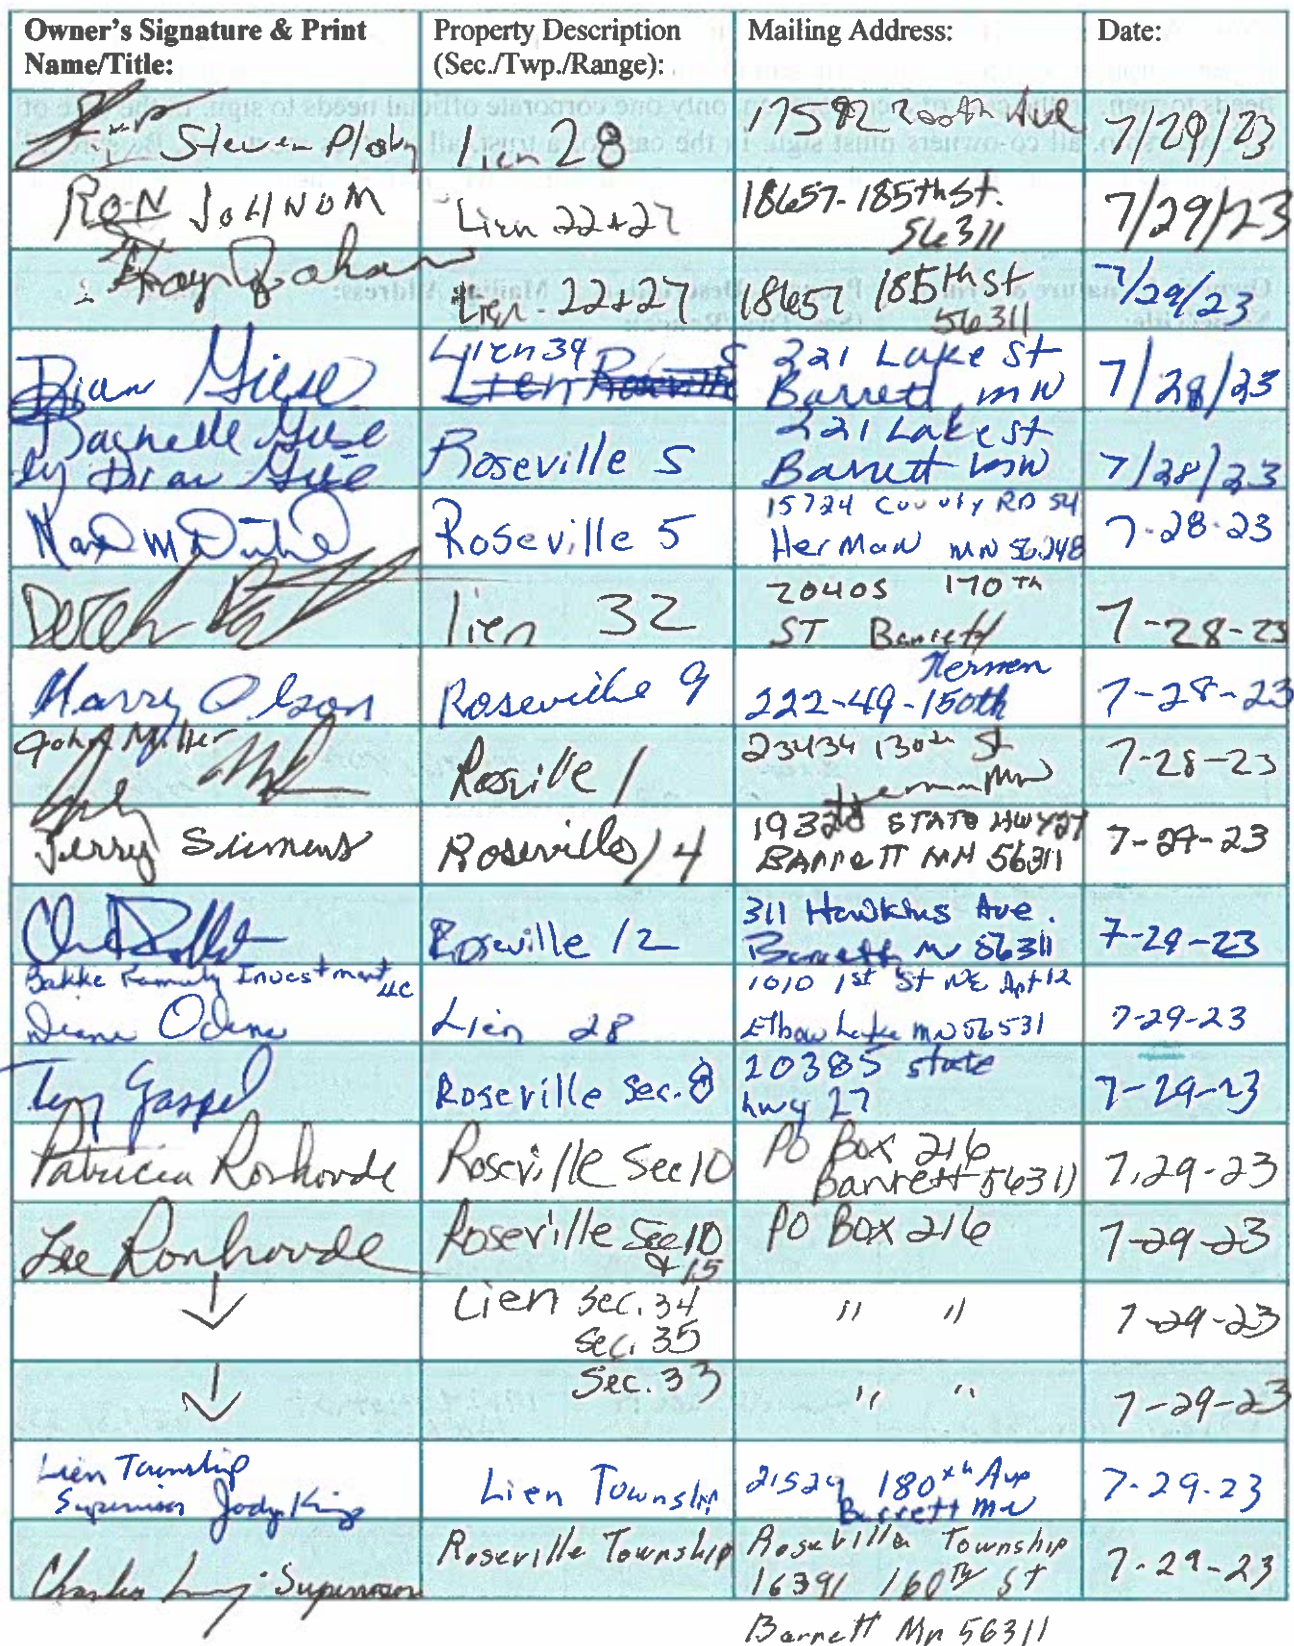 Owner's Signature & Print Name/Title:
Property Description (Sec./Twp./Range):
Mailing Address:
Date:
Steven
Lien 28
17582 200th Ave
7/29/23
RON JOHNSON
Lien 22+27
18657-185th St.
56311
7/29/23
Lien - 22+27
18657 185th St
56311
7/29/23
Brian Giese
Lien 34
Lien Roseville
221 Lake St
Barrett, MN
7/28/23
Giese
by Brian Giese
Roseville 5
221 Lake St
Barrett MN
7/28/23
Roseville 5
15724 County RD 54
Herman MN 56248
7-28-23
Derek
Lien 32
20405 170TH
ST Barrett
7-28-23
Harry Olson
Roseville 9
Herman
222-49-150th
7-28-23
John Miller
Rosville 1
23434 130th St
Herman MN
7-28-23
Jerry Siemens
Roseville 14
STATE HWY 27
BARRETT MN 56311
7-29-23
Roseville 12
311 Hawkins Ave.
Barrett, MN 56311
7-29-23
Bakke Family Investment LLC
Diane Odens
Lien 28
1010 1st St NE Apt 12
Elbow Lake MN 56531
7-29-23
Gaspel
Roseville Sec. 8
20385 state
hwy 27
7-29-23
Patricia Ronhovde
Roseville Sec 10
PO Box 216
Barrett 56311
7.29-23
Lee Ronhovde
Roseville Sec 10
& 15
PO Box 216
7-29-23
↓
Lien Sec. 34
Sec. 35
" "
7-29-23
↓
Sec. 33
" "
7-29-23
Lien Township
Supervisor Jody King
Lien Township
21529 180th Ave
Barrett MN
7-29-23
Charles Supervisor
Roseville Township
Roseville Township
16391 160TH ST
7-29-23
Barrett Mn 56311